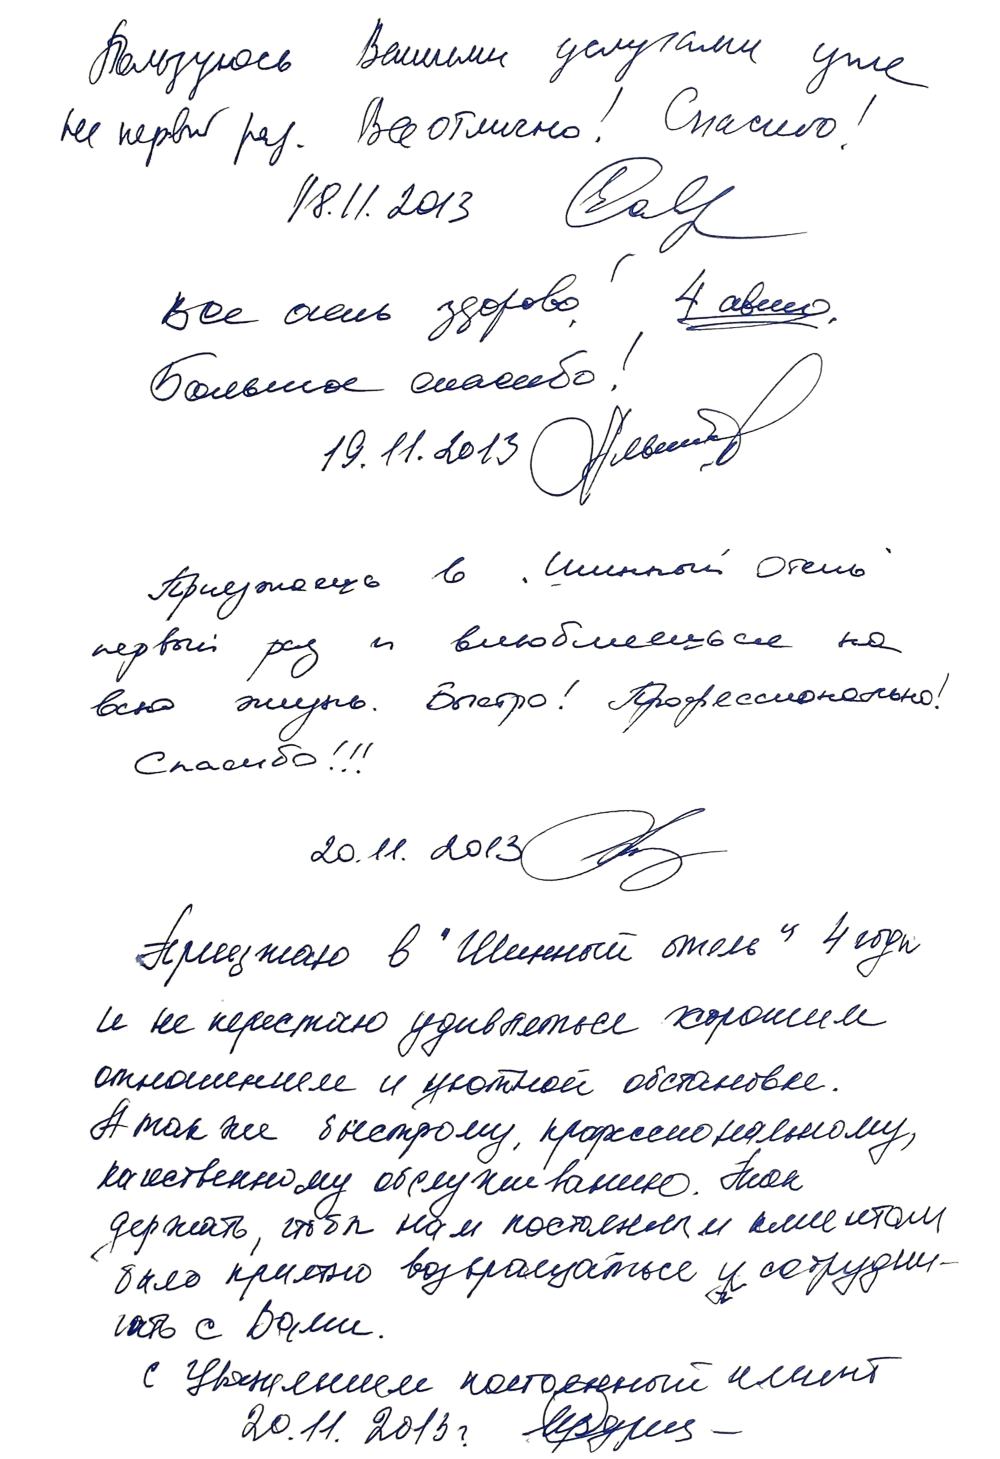 Пользуюсь Вашими услугами уже
не первый раз. Все отлично! Спасибо!
18.11.2013
Все очень здорово! 4 авто.
Большое спасибо!
19.11.2013
Приезжаешь в "Шинный Отель"
первый раз и влюбляешься на
всю жизнь. Быстро! Профессионально!
Спасибо!!!
20.11.2013
Приезжаю в "Шинный отель" 4 года
и не перестаю удивляться хорошим
отношением и уютной обстановке.
А так же быстрому, профессиональному,
качественному обслуживанию. Так
держать, чтобы нам постоянным клиентам
было приятно возвращаться и сотрудни-
чать с Вами.
С Уважением постоянный клиент
20.11.2013г.